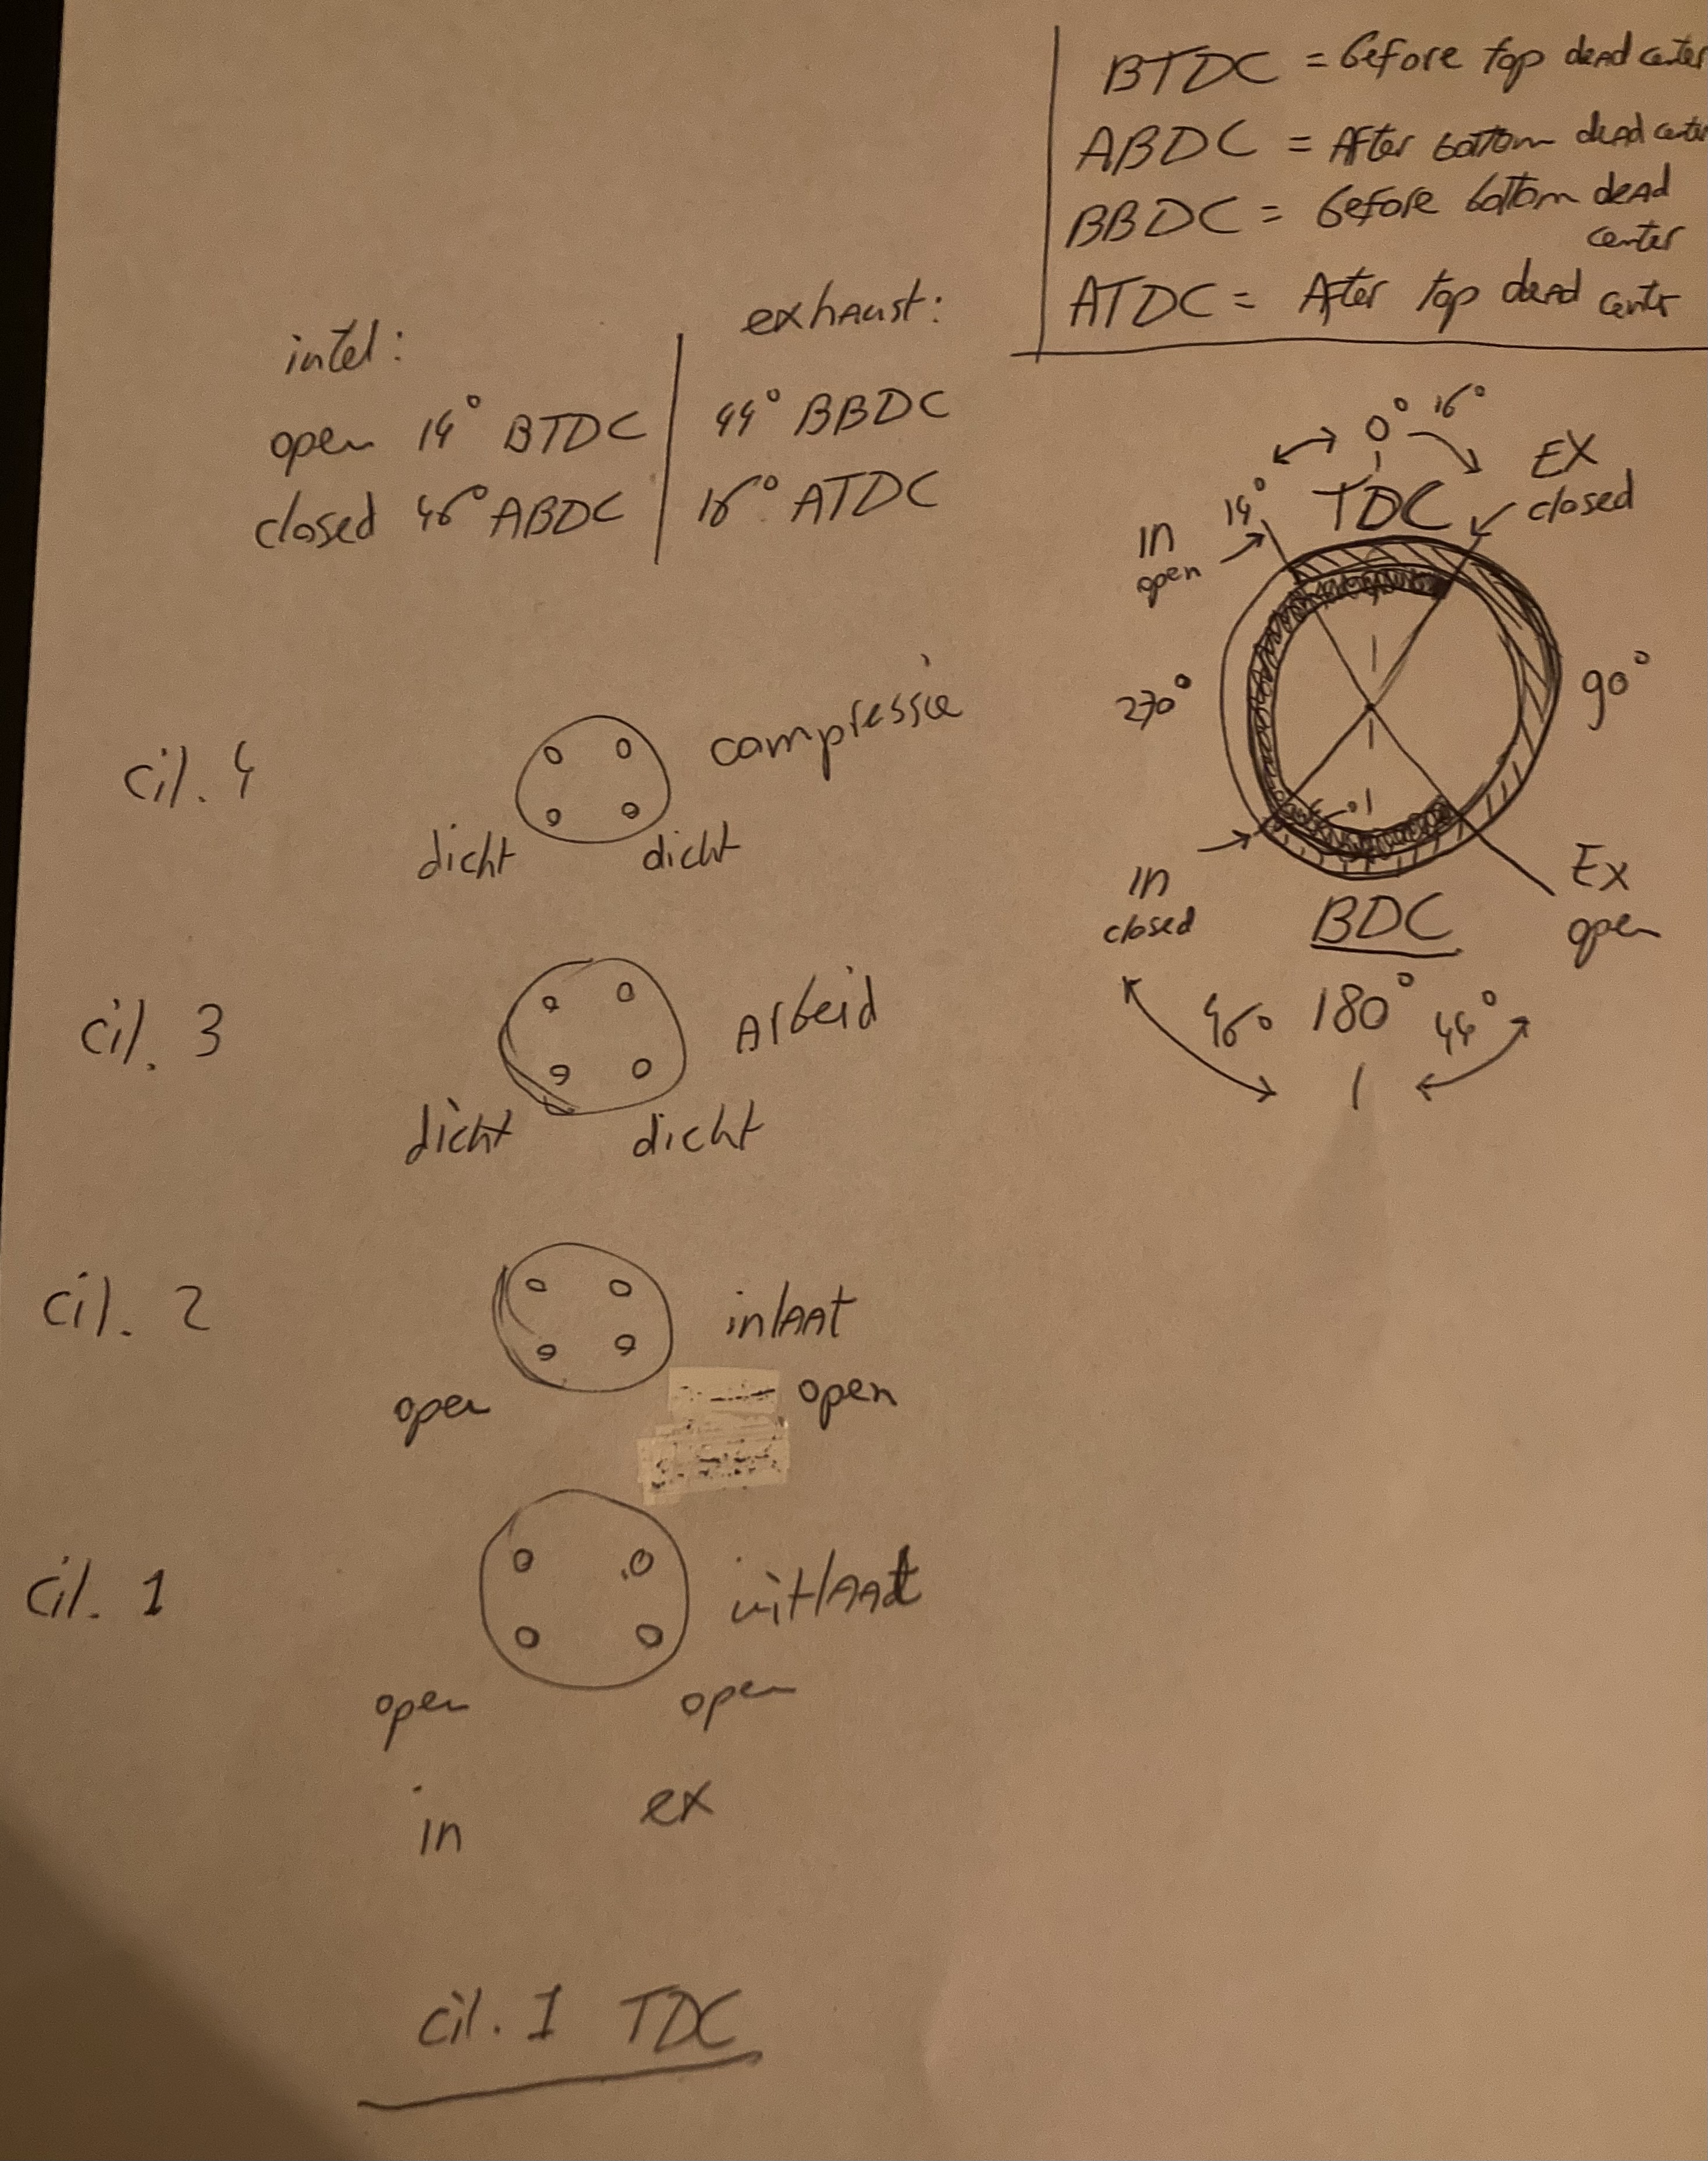 BTDC = Before top dead center
ABDC = After bottom dead center
BBDC = Before bottom dead
center
ATDC = After top dead center
intel: exhaust:
open 14° BTDC 44° BBDC
closed 46° ABDC 16° ATDC
0° 16°
14° TDC
EX
closed
In
open
270° 90°
In
closed
BDC
Ex
open
46° 180° 44°
cil. 4 compressie
dicht dicht
cil. 3 Arbeid
dicht dicht
cil. 2 inlAAt
open open
cil. 1 uitlAAt
open open
in ex
cil. 1 TDC